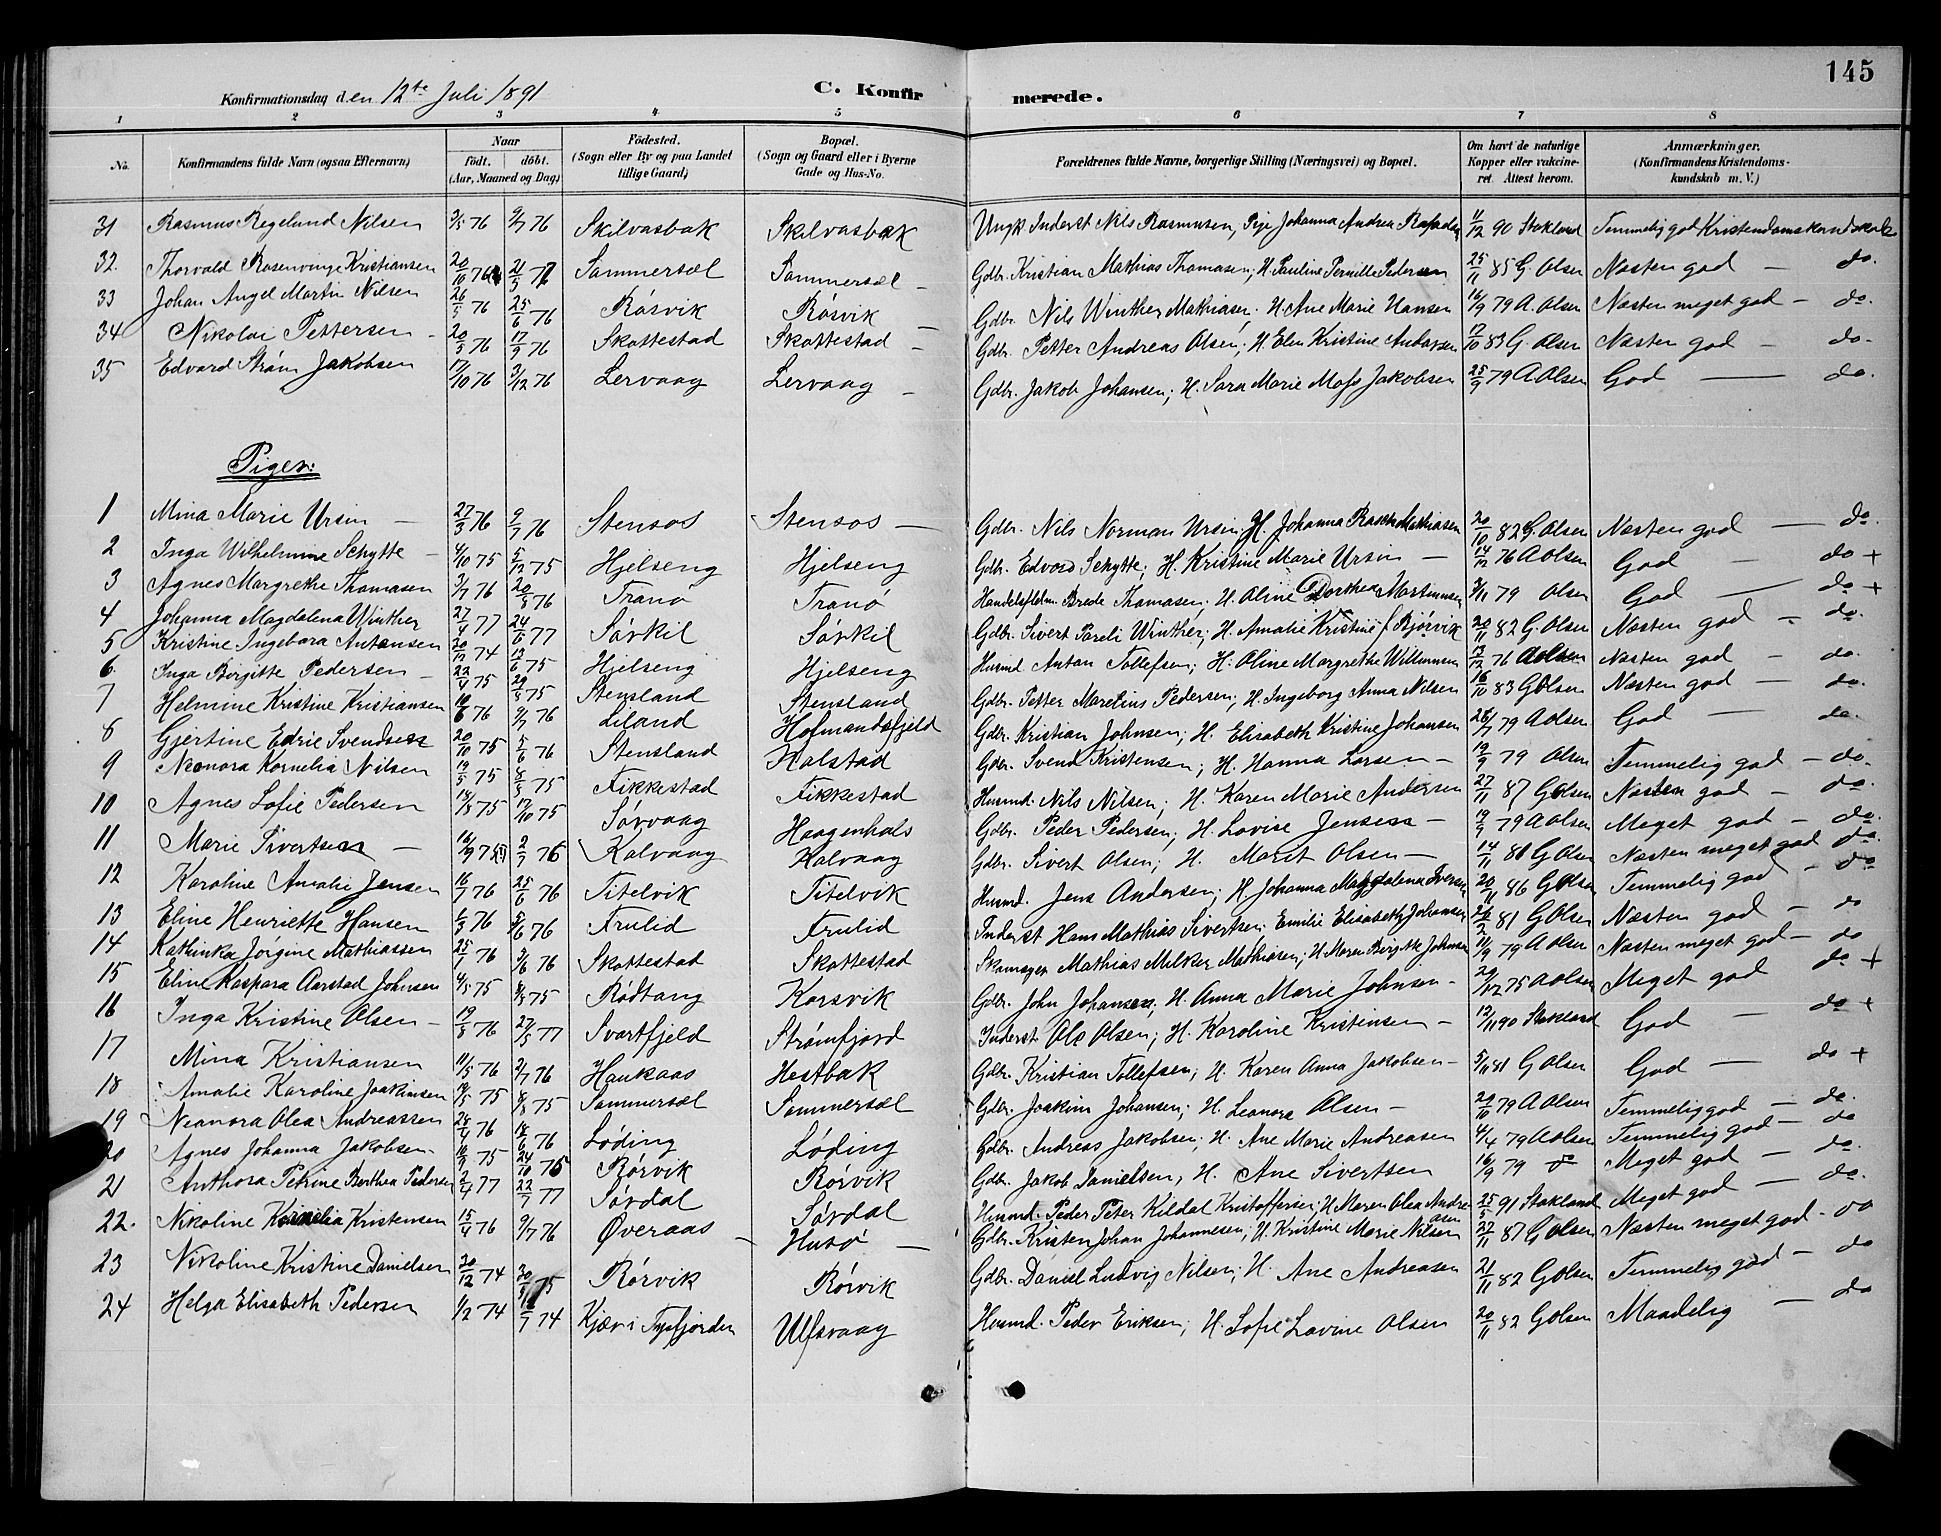 145
Konfirmationsdag den 12te Juli 1891 C. Konfirmerede.
1 2 3 4 5 6 7 8
No. Konfirmandens fulde Navn (ogsaa Efternavn) Naar födt. döbt. (Aar, Maaned og Dag) Födested. (Sogn eller By og paa Landet tillige Gaard) Bopæl. (Sogn og Gaard eller i Byerne Gade og Hus-No. Forældrenes fulde Navne, borgerlige Stilling (Næringsvei) og Bopæl. Om havt de naturlige Kopper eller vakcineret. Attest herom. Anmærkninger. (Konfirmandens Kristendomskundskab m. V.)
31 Rasmus Regelund Nilsen 3/5 76 9/7 76 Skilvasbak Skilvasbak Ungk Inderst Nils Rasmusen, Pige Johanna Andrea 11/12 90 Stokland Temmelig god Kristendomskundskab
32. Thorvald Rosenvinge Kristiansen 20/10 76 21/5 77 Sommersæl Sommersæl - Gdbr. Kristian Mathias Thomasen; H. Pauline Pernille Pedersen 25/11 85 G. Olsen Næsten god - do.
33 Johan Angel Martin Nilsen 26/5 76 25/6 76 Røsvik Røsvik - Gdbr. Nils Winther Mathiasen; H. Ane Marie Hansen 16/9 79 A. Olsen Næsten meget god - do.
34 Nikolai Pettersen - 20/5 76 17/9 76 Skottestad Skottestad - Gdbr. Petter Andreas Olsen; H. Elen Kristine Andersen 17/10 83 G. Olsen Næsten god - do.
35 Edvard Strøm Jakobsen 17/10 76 3/12 76 Lervaag Lervaag - Gdbr. Jakob Johansen; H. Sara Marie Moss Jakobsen 25/9 79 A Olsen God - do.
Piger:
1 Mina Marie Ursin - 27/3 76 9/7 76 Stensøs Stensøs - Gdbr. Nils Norman Ursin, H. Johanna Rasch Mathiasen 20/10 82 G. Olsen Næsten god - do.
2 Inga Wilhelmine Schytte - 4/10 75 5/12 75 Hjelseng Hjelseng Gdbr. Edvard Schytte; H. Kristine Marie Ursin - 14/12 76 A Olsen God - do +
3 Agnes Margrethe Thomasen 3/7 76 20/8 76 Tranø Tranø Handelsfldm. Brede Thomasen; H. Oline Dorthea Martinusen 3/11 79 Olsen God - do +
4 Johanna Magdalena Winther 27/4 77 24/6 77 Sørkil Sørkil Gdbr. Sivert Pareli Winther; H. Amalie Kristine f Bjørvik 20/11 82 G. Olsen Næsten god - do.
5 Kristine Ingebora Antonsen 20/12 74 13/6 75 Hjelseng Hjelseng Husmd Anton Tollefsen; H. Oline Margrethe Willumsen 13/12 76 A Olsen Næsten god - do.
6. Inga Birgitte Pedersen - 22/4 75 29/8 75 Stensland Stensland Gdbr. Petter Marelius Pedersen; H. Ingeborg Anna Nilsen 16/10 83 G Olsen Næsten god - do.
7 Helmine Kristine Kristiansen 10/6 76 9/7 76 Liland Hofmandsfjeld Gdbr. Kristian Johnsen; H. Elisabeth Kristine Johansen 28/7 79 A Olsen God - do.
8 Gjertine Edrie Svendsen 20/10 75 5/6 76 Stensland Halstad Gdbr. Svend Kristensen; H. Hanna Larsen - 19/9 79 Olsen Temmelig god - do.
9 Neonora Kornelia Nilsen 19/5 75 8/8 75 Fikkestad Fikkestad Husmd. Nils Nilsen; H. Karen Marie Andersen 27/11 87 G Olsen Næsten god - do.
10 Agnes Sofie Pedersen 18/8 75 17/10 75 Sørvaag Haagenhals Gdbr. Peder Pedersen; H. Lovise Jensen - 19/9 79 A Olsen Meget god - do.
11 Marie Sivertsen - 16/9 75 2/7 76 Kalvaag Kalvaag Gdbr. Sivert Olsen; H. Marit Olsen - 14/11 81 G Olsen Næsten meget god do.
12 Karoline Amalie Jensen 16/1 76 25/6 76 Titelvik Titelvik Husmd. Jens Andersen; H Johanna Magdalena Iversen 20/11 86 G Olsen Temmelig god - do
13 Eline Henriette Hansen 6/3 76 5/6 76 Frulid Frulid Inderst Hans Mathias Sivertsen; Emilie Elisabeth Johansen 81 G Olsen Næsten god - do
14 Kathinka Jørgine Mathiassen 25/1 76 5/6 76 Skottestad Skottestad Skomager Mathias Milker Mathiasen; H. Maren Birgitte Johnsen 11/9 79 A Olsen Næsten meget god - do
15 Eline Kaspara Aarstad Johnsen 4/5 75 8/8 75 Rødtang Korsvik Gdbr. John Johansen; H. Anna Marie Johnsen - 29/12 75 A Olsen Meget god do +
16 Inga Kristine Olsen - 19/8 76 27/5 77 Svartfjeld Strømfjord Inderst Ole Olsen; H. Karoline Kristinsen - 12/11 90 Stokland God - do +
17 Mina Kristiansen 11/5 76 2/7 76 Haukaas Hestbak Gdbr. Kristian Tollefsen; H. Karen Anna Jakobsen - 5/11 81 G Olsen God - do +
18 Amalie Karoline Joakimsen 19/5 75 8/8 75 Sommersæl Sommersæl Gdbr. Joakim Johansen; H. Leonora Olsen - 29/10 79 A Olsen Temmelig god - do.
19 Neanora Olea Andreassen 28/4 76 18/6 76 Løding Løding Gdbr. Andreas Jakobsen; H. Ane Marie Andreasen 4/4 79 A Olsen Temmelig god - do
20 Agnes Johanna Jakobsen. 10/9 75 24/10 75 Rørvik Rørvik Gdbr. Jakob Danielsen, H. Ane Sivertsen 16/9 79 do Meget god - do.
21 Anthora Petrine Berthea Pedersen 2/4 77 22/7 77 Sørdal Sørdal Husmd. Peder Peter Kildal Kristoffersen; H. Maren Olea Andreasen 25/5 91 Stokland Meget god - do.
22. Nikoline Kornelia Kristensen 15/4 76 9/7 76 Øveraas - Husø - Gdbr. Kristen Johan Johannesen; H. Kristine Marie Nilsen 27/11 87 G Olsen Næsten meget god - do
23 Nikoline Kristine Danielsen 20/12 74 75 Rørvik Rørvik Gdbr. Daniel Ludvig Nilsen; H. Ane Andreasen 21/11 82 G Olsen Temmelig god - do
24 Helga Elisabeth Pedersen 1/2 74 74 Kjær i Tysfjorden Ulfsvaag Husmd. Peder Eriksen; H. Sofie Lovine Olsen 20/11 82 G Olsen Maadelig - do